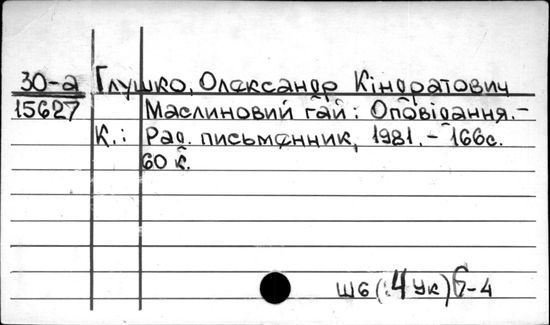 30-а Глушко, Олександр Кіндратович
15627 Маслиновий гай: Оповідання.-
К.: Рад. письменник, 1981.- 166с.
60 к.
Ш6(:4Ук)6-4